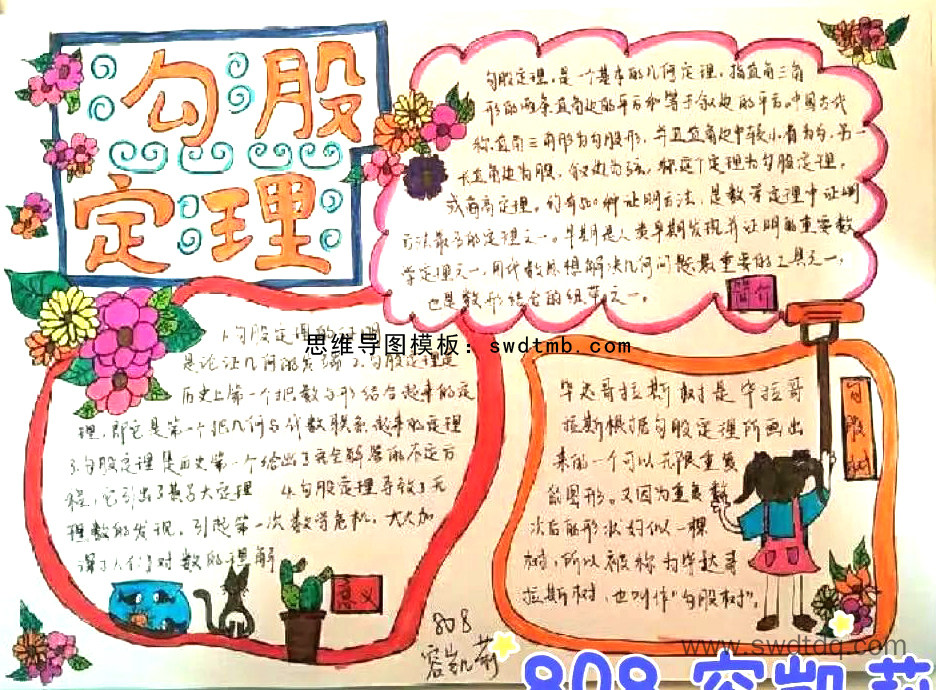 勾股
定理
勾股定理,是一个基本的几何定理,指直角三角
形的两条直角边的平方和等于斜边的平方。中国古代
称直角三角形为勾股形,并且直角边中较小者为勾,另一
长直角边为股,斜边为弦,称这个定理为勾股定理,
或商高定理。约有500种证明方法,是数学定理中证明
方法最多的定理之一。早期是人类早期发现并证明的重要数
学定理之一,用代数思想解决几何问题最重要的工具之一,
也是数形结合的纽带之一。
简介
1.勾股定理的证明
是论证几何的发端 2.勾股定理是
历史上第一个把数与形结合起来的定
理,即它是第一个把几何与代数联系起来的定理
3.勾股定理是历史第一个给出了完全解答的不定方
程,它引出了费马大定理 4.勾股定理导致了无
理数的发现,引起第一次数学危机,大大加
深了人们对数的理解
意义
思维导图模板:swdtmb.com
毕达哥拉斯树是毕拉哥
拉斯根据勾股定理所画出
来的一个可以无限重复
的图形。又因为重复数
次后的形状好似一棵
树,所以被称为毕达哥
拉斯树,也叫作“勾股树”。
勾股树
808
容凯莉
www.swdtdq.com
808 容凯莉